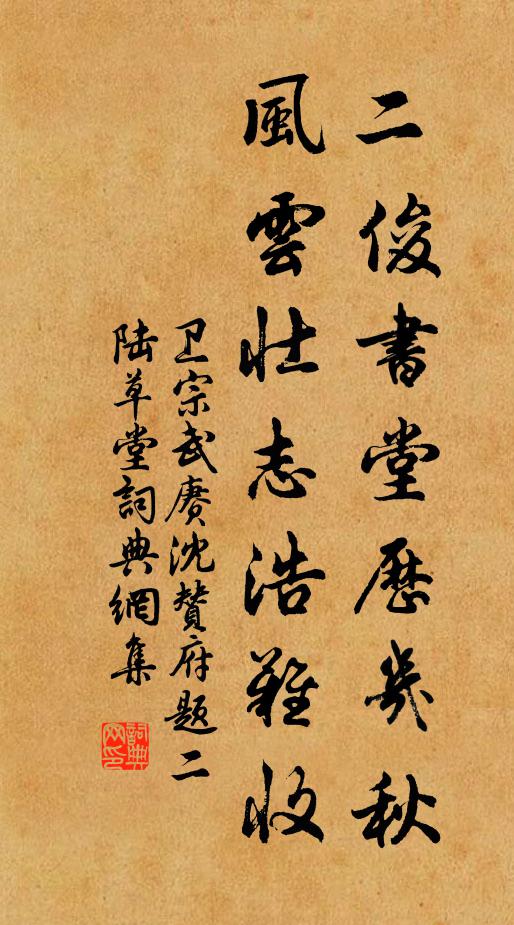 二俊書堂歷幾秋
風雲壯志浩難收
卫宗武赓沈贊府題二
陸草堂詞典網集
詞典網印